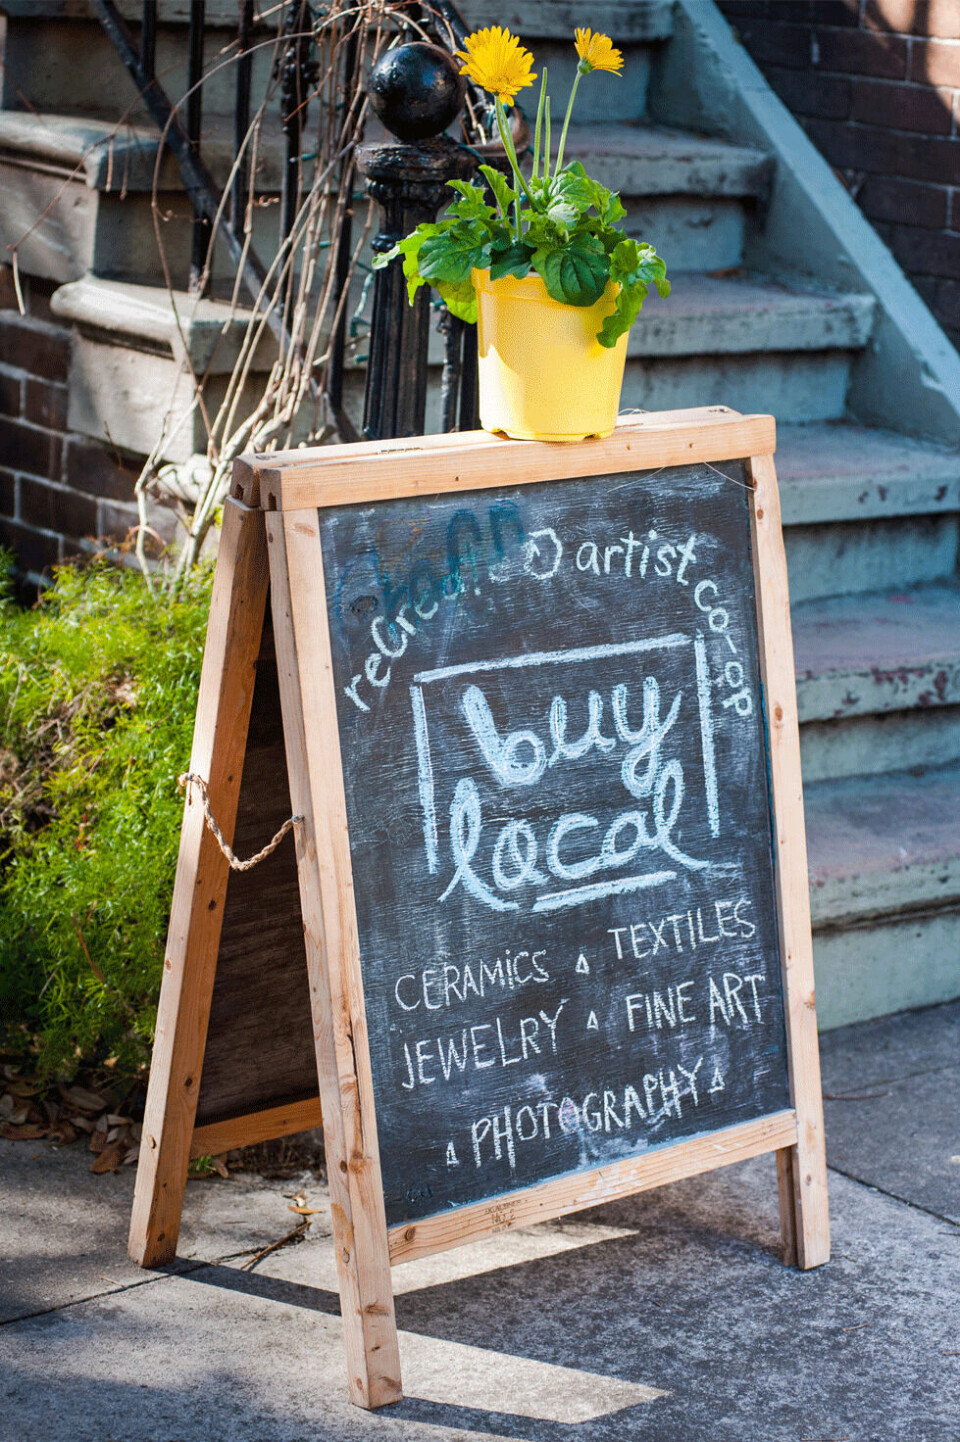 artist co-op
buy
local
CERAMICS TEXTILES
JEWELRY FINE ART
PHOTOGRAPHY